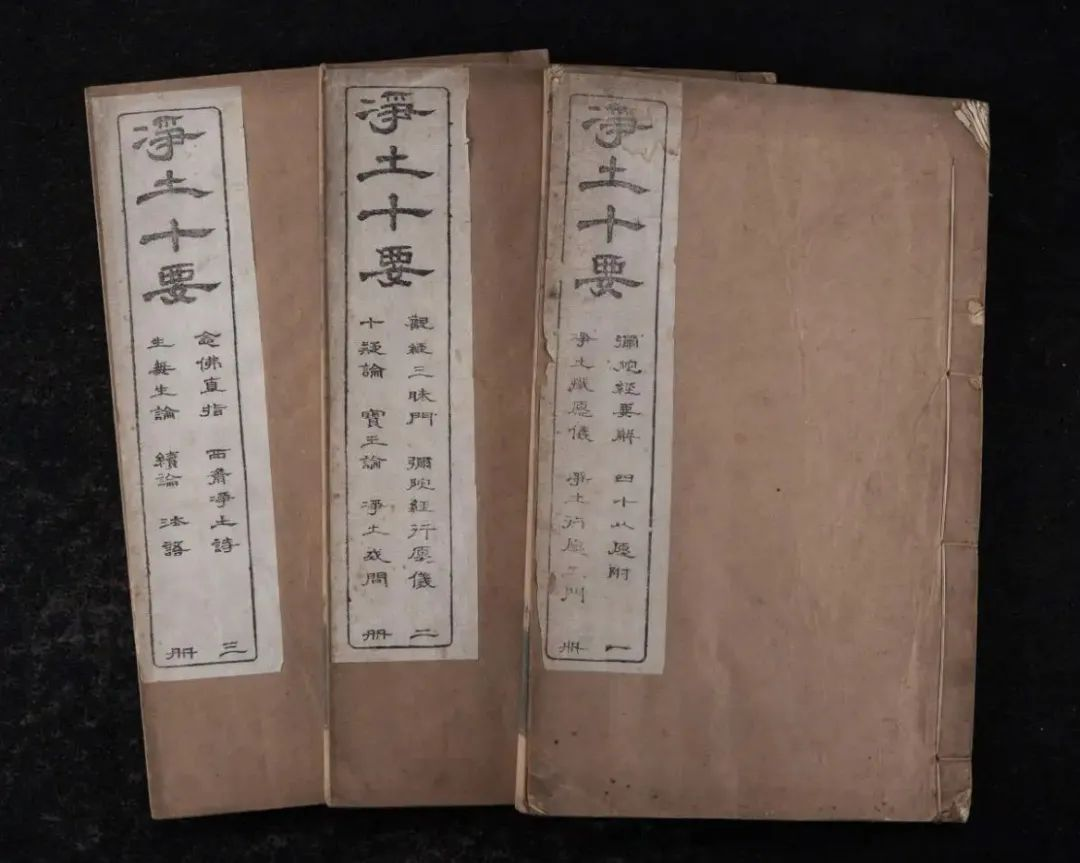 淨土十要
彌陀經要解 四十八願附
淨土懺愿儀 淨土行愿二門
一册
淨土十要
觀經三昧門 彌陀經行愿儀
十疑論 寶王論 淨土或問
二册
淨土十要
念佛直指 西齋淨土詩
生無生論 續論 法語
三册